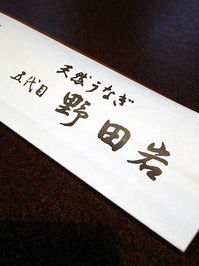 天然うなぎ
五代目
野田岩